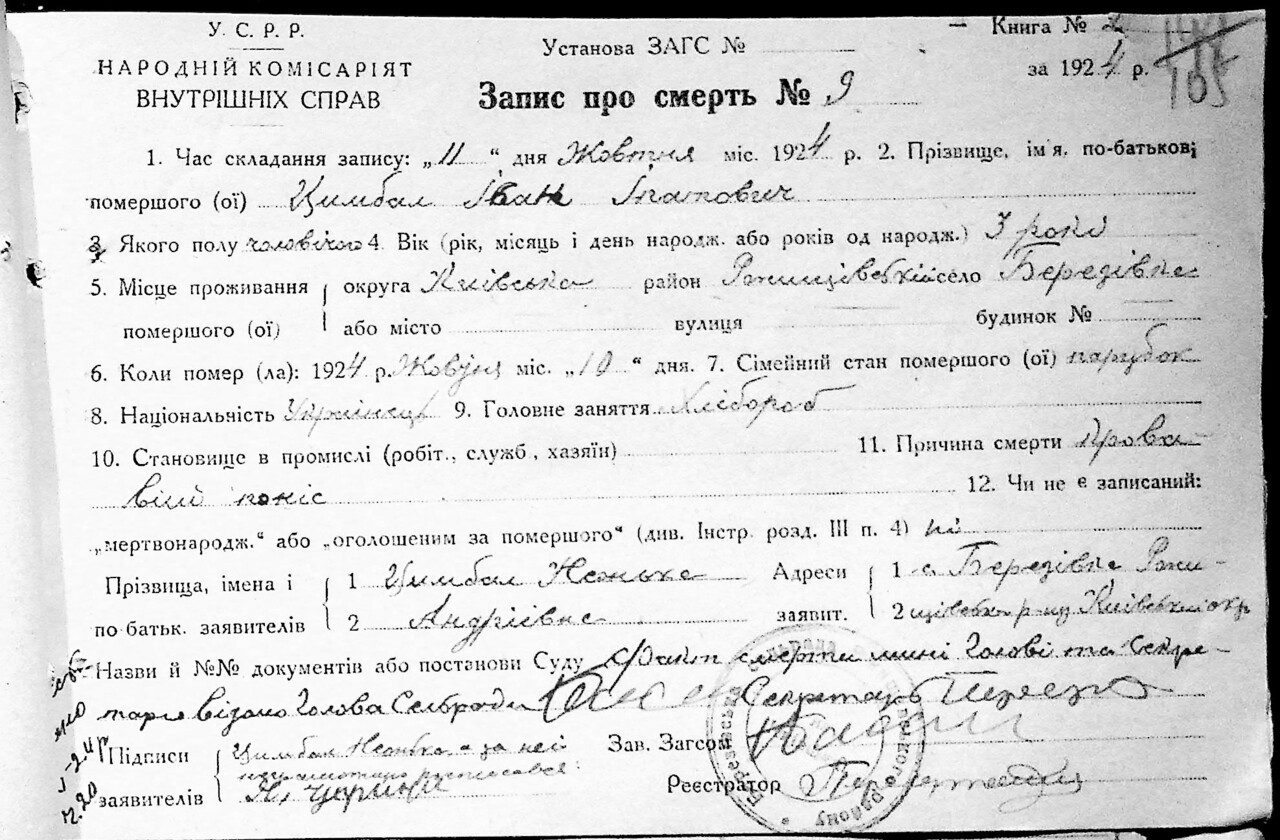 У. С. Р. Р.
НАРОДНІЙ КОМІСАРІЯТ
ВНУТРІШНІХ СПРАВ
Установа ЗАГС №
Книга № 2
за 1924 р.
105
Запис про смерть № 9
1. Час складання запису: „11“ дня Жовтня міс. 1924 р. 2. Прізвище, ім'я, по-батькові
помершого (ої) Цимбал Іван Іпатович
3. Якого полу чоловічого 4. Вік (рік, місяць і день народж. або років од народж.) 3 роки
5. Місце проживання округа Київська район Ржищівський село Березівка
помершого (ої) або місто вулиця будинок №
6. Коли помер (ла): 1924 р. Жовтня міс. „10“ дня. 7. Сімейний стан помершого (ої) парубок
8. Національність Українець 9. Головне заняття Хлібороб
10. Становище в промислі (робіт., служб., хазяїн) 11. Причина смерти Крова
вий поніс 12. Чи не є записаний:
„мертвонародж.“ або „оголошеним за помершого“ (див. Інстр. розд. III п. 4) ні
Прізвища, імена і 1 Цимбал Адреси 1 с Березівка Ржи-
по батьк. заявителів 2 Андріївна заявит. 2 щівськ р-ну Київської окр
Назви й №№ документів або постанови Суду Факт смерти мині Голові та Секре-
тарю відомо Голова Сельради Секретарь
Підписи Цимбал а за неї
заявителів
Зав. Загсом
Реєстратор